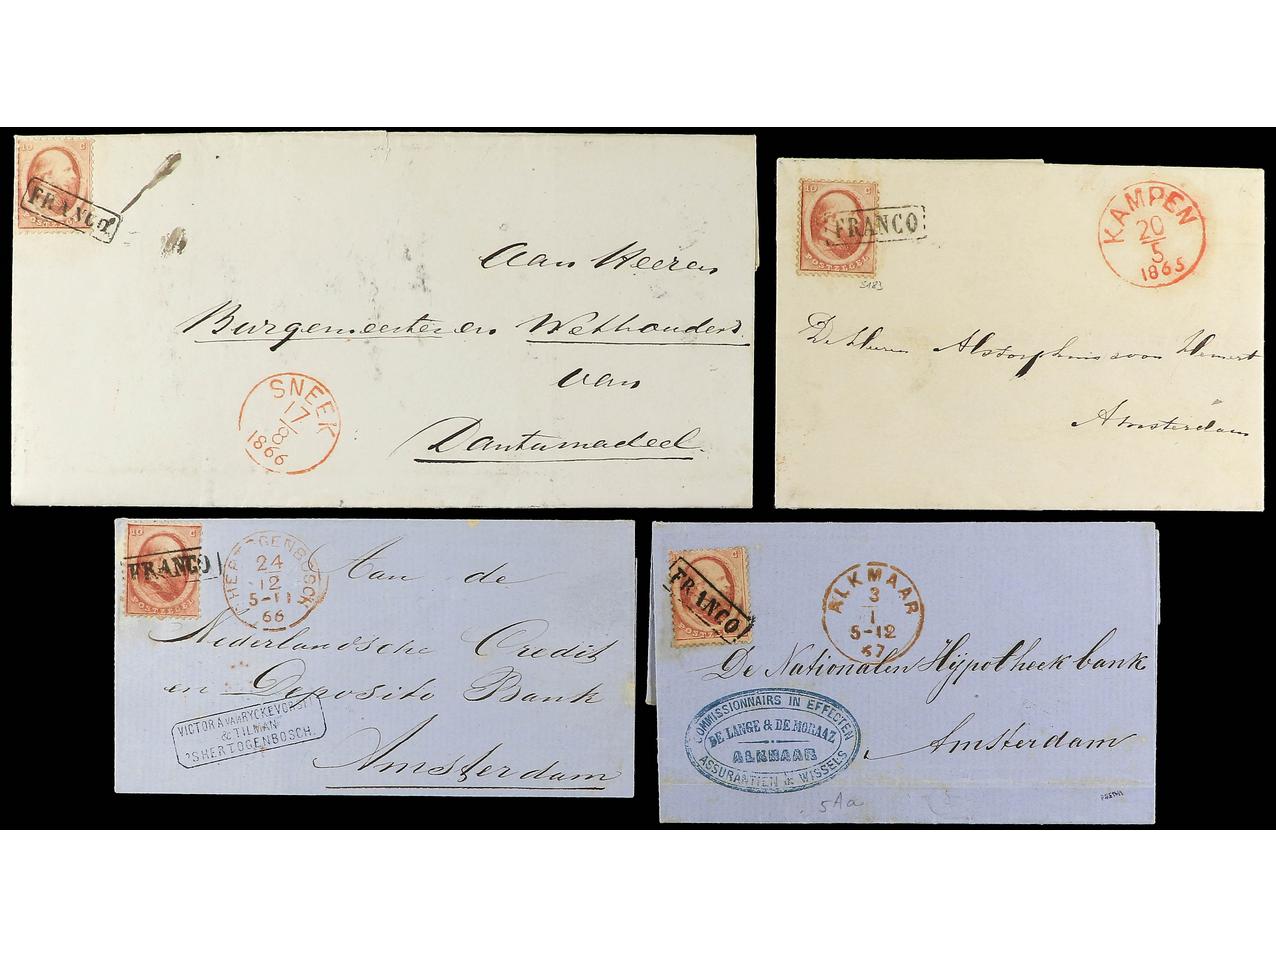 10 C
FRANCO
Aan Heeren
Burgemeester en Wethouders
van
Dantumadeel.
SNEEK
17
8
1866
10 C
FRANCO
POSTZEGEL
5183
KAMPEN
20
5
1865
De Heeren Alstorphius van Hemert
Amsterdam
10 C
FRANCO
POSTZEGEL
'S HERTOGENBOSCH
24
12
5-11
66
Aan de
Nederlandsche Credit
en Deposito Bank
Amsterdam
VICTOR A VAN RYCKEVORSEL
& TILMAN
'SHERTOGENBOSCH.
C
FRANCO
POSTZEGEL
ALKMAAR
3
1
5-12
67
De Nationalen Hijpotheek bank
Amsterdam
COMMISSIONNAIRS IN EFFECTEN
DE LANGE & DE MORAAZ
ALKMAAR
ASSURANTIEN & WISSELS
5Aa